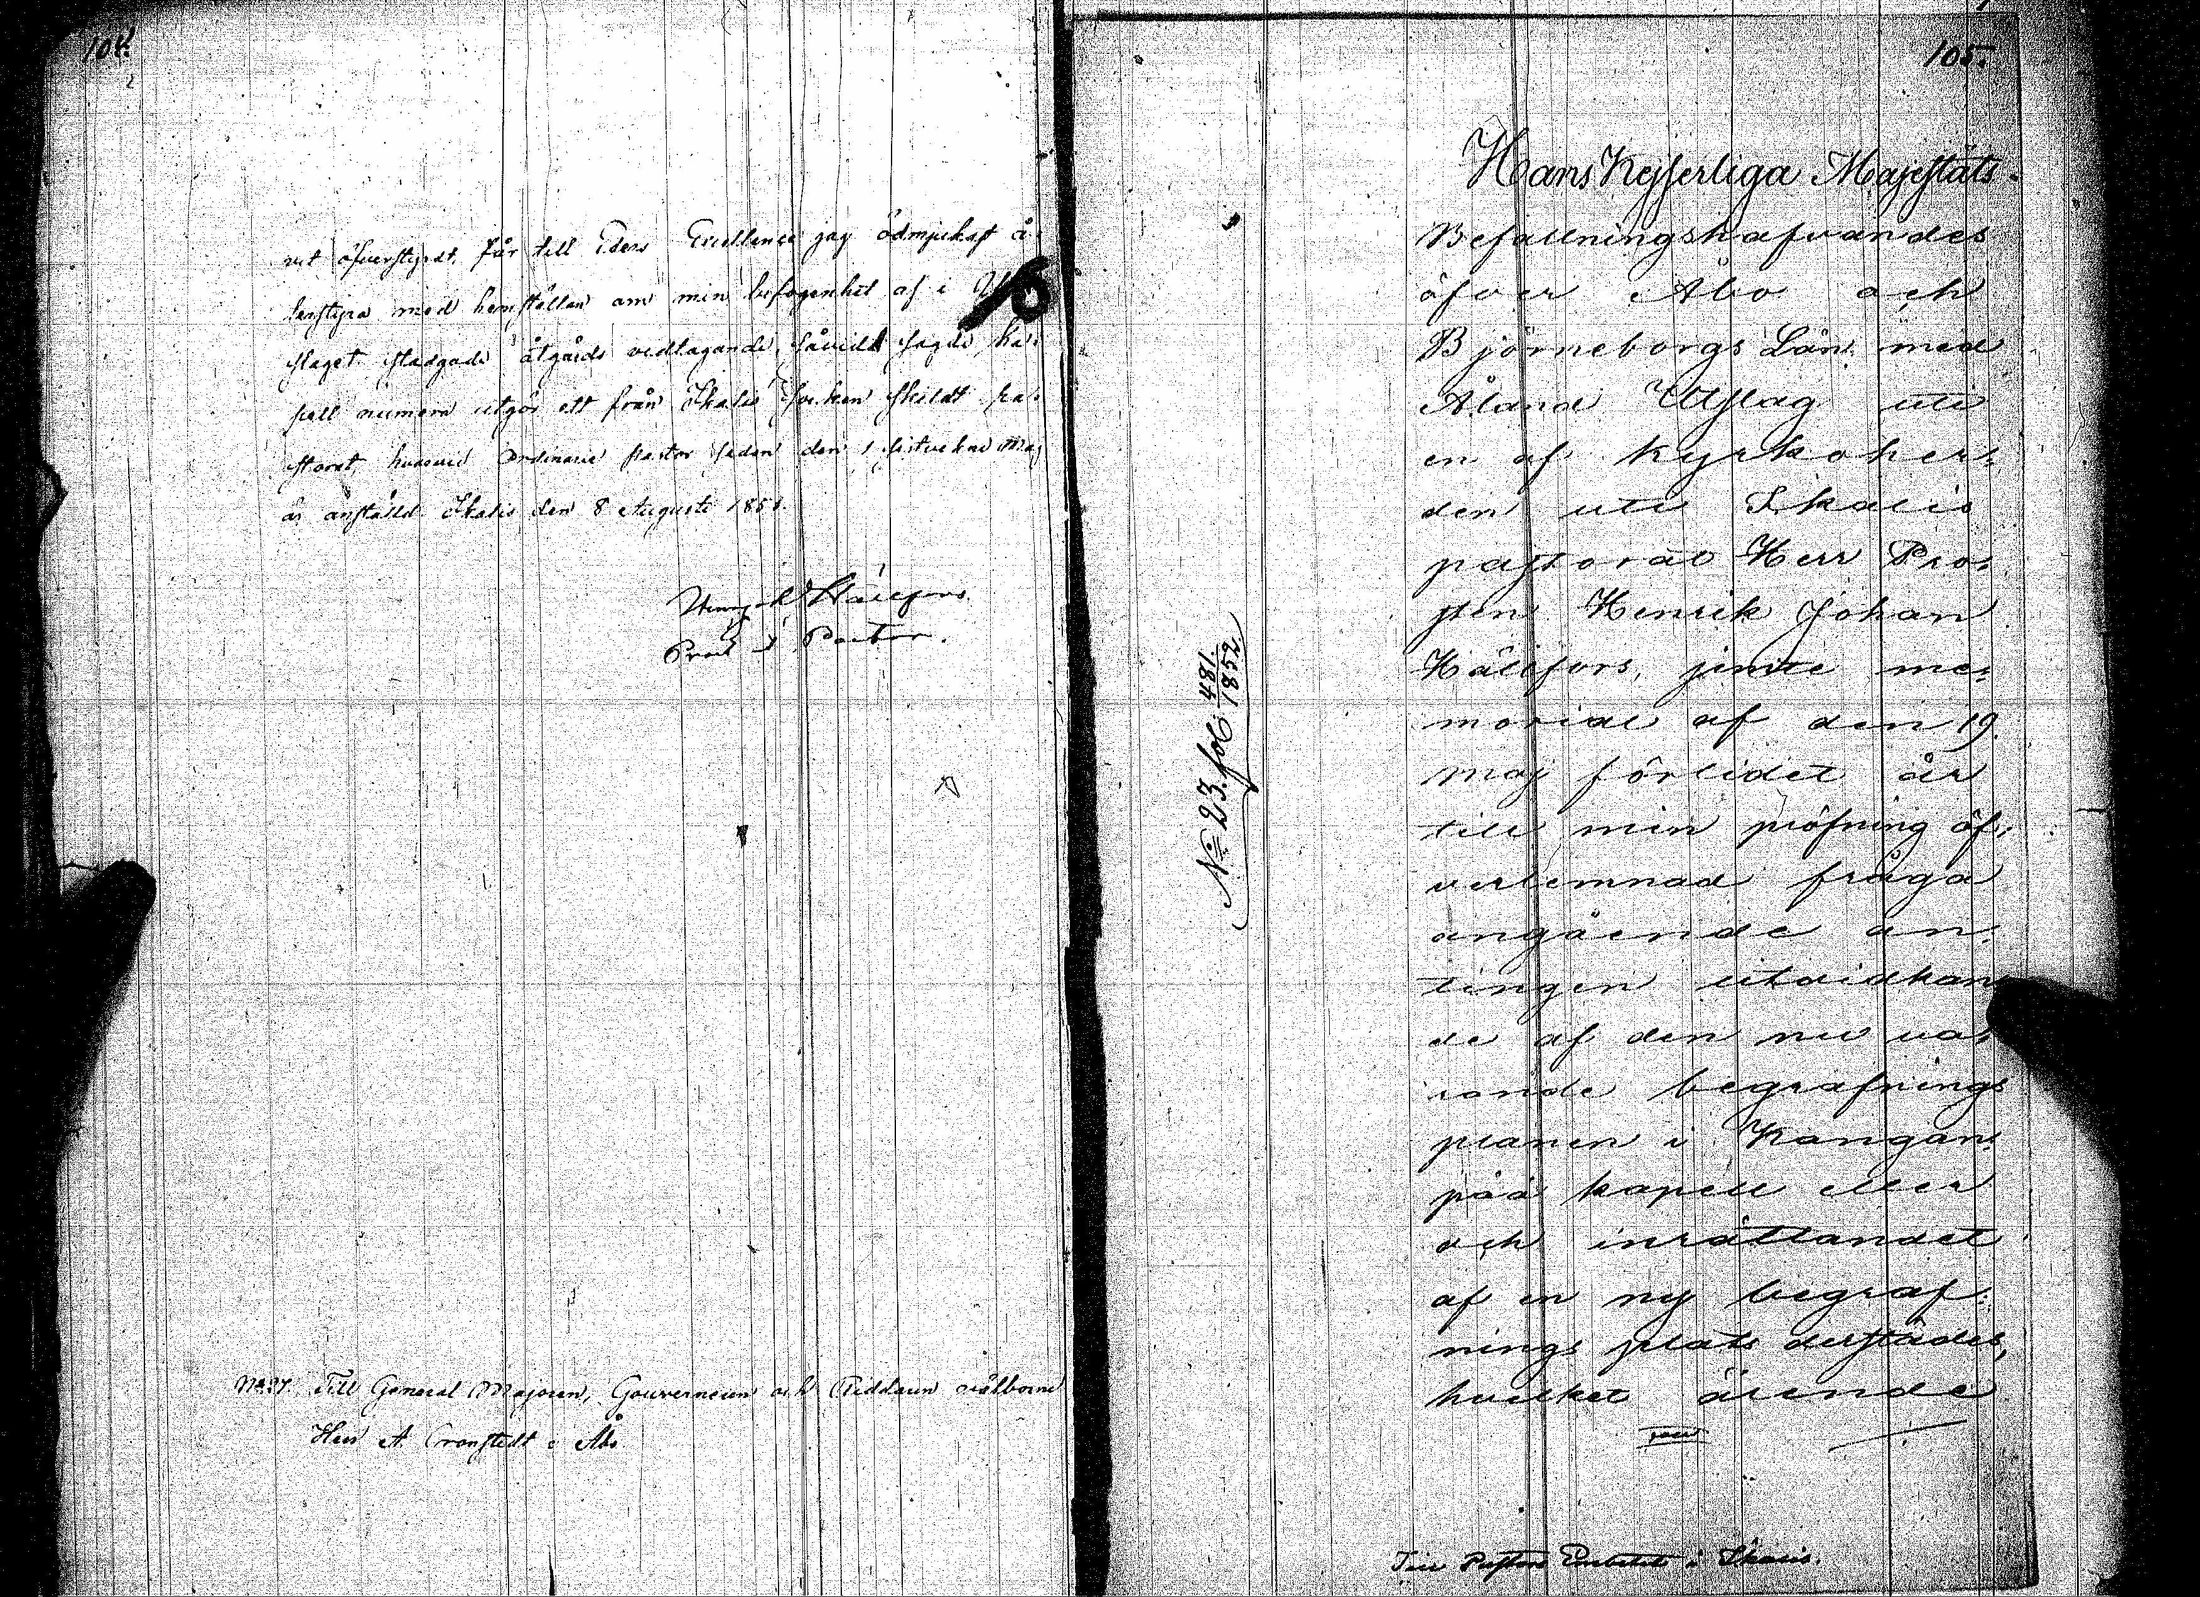 104.
vet öfverstyrdt, får till Eders Excellence jag ödmjukast å-
terstyra med hemställan om min befogenhet af i Ut-
slaget stadgade åtgärds vidtagande, såvidt sagde ka-
pell numera utgör ett från Ikalis socken skildt pa-
storat, hvarvid Ordinarie pastor sedan den 1 sistvekne Maj
är anställd. Ikalis den 8 Augusti 185
Hällfors
Prost Pastor.
N:o 37. Till General Majoren, Gouverneuren och Riddaren välborne
Herr A. Cronstedt i Åbo
105.
Hans Kejserliga Majestäts
Befallningshafvandes
öfver Åbo och
Björneborgs Län med
Åland Utslag uti
en af Kyrkoher-
den uti Ikalis
pastorat Herr Pro-
sten Henrik Johan
Hällfors, jemte me-
morial af den 19
Maj förlidet år
till min pröfning öf-
verlemnad fråga
angående an-
tingen utvidkan-
de af den nu va-
rande begrafnings
planen i Kangan-
pää kapell eller
och inrättandet
af en ny begraf-
nings plats derstädes,
hvilket ärende
Till Pastors Embetet i Ikalis.
N:o 23. fol 481
1852